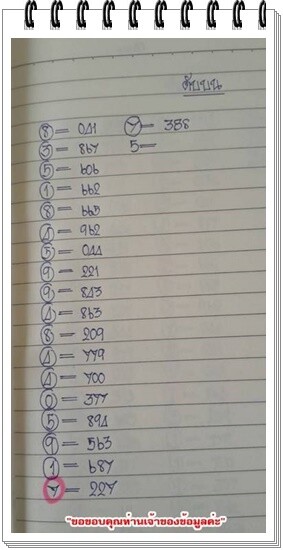 ดับบน
⑧ = 041
③ = 867
⑤ = 606
① = 662
⑧ = 665
④ = 962
⑤ = 044
⑨ = 221
⑨ = 843
④ = 863
⑧ = 209
④ = 779
④ = 700
⓪ = 377
⑤ = 894
⑨ = 563
① = 687
⑦ = 227
⑦ = 358
5 =
"ขอขอบคุณท่านเจ้าของข้อมูลค่ะ"